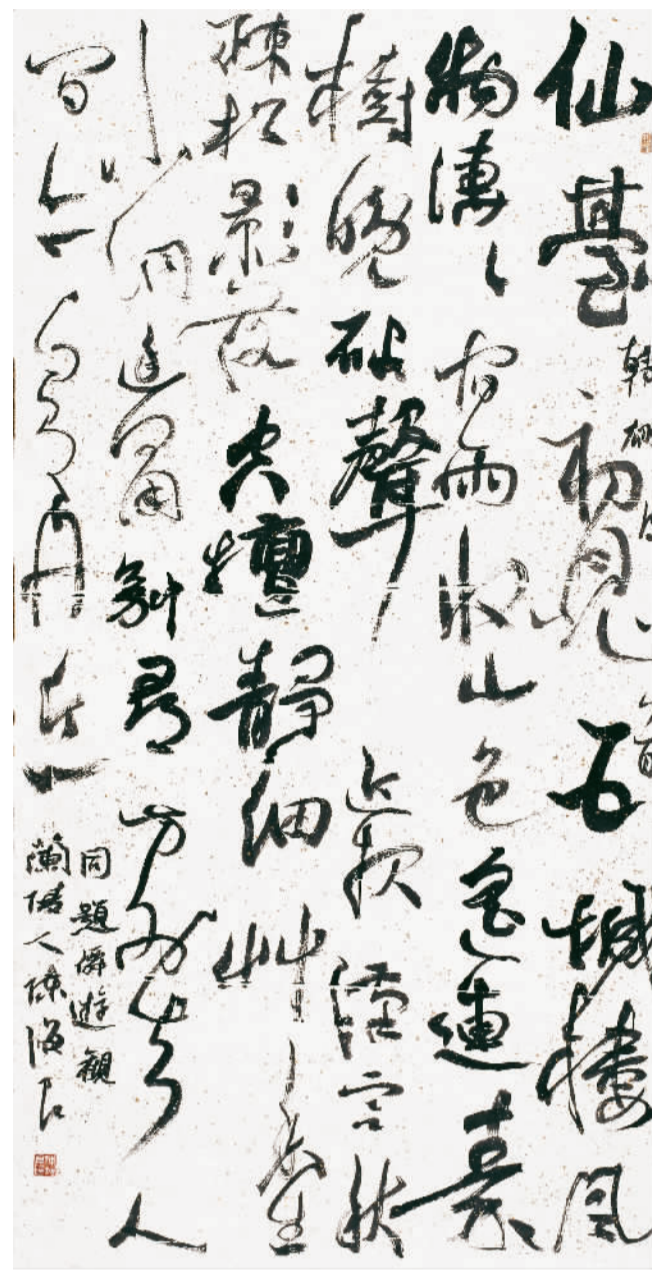 仙臺初見五城樓風
物凄々宿雨收山色遙連秦
樹晚砧聲近報漢宮秋
疎松影落空壇靜細艸香生
小洞幽何用別尋方外去人
間亦自有丹丘
韓翃
同題僊遊觀
蘭陵人陳海良